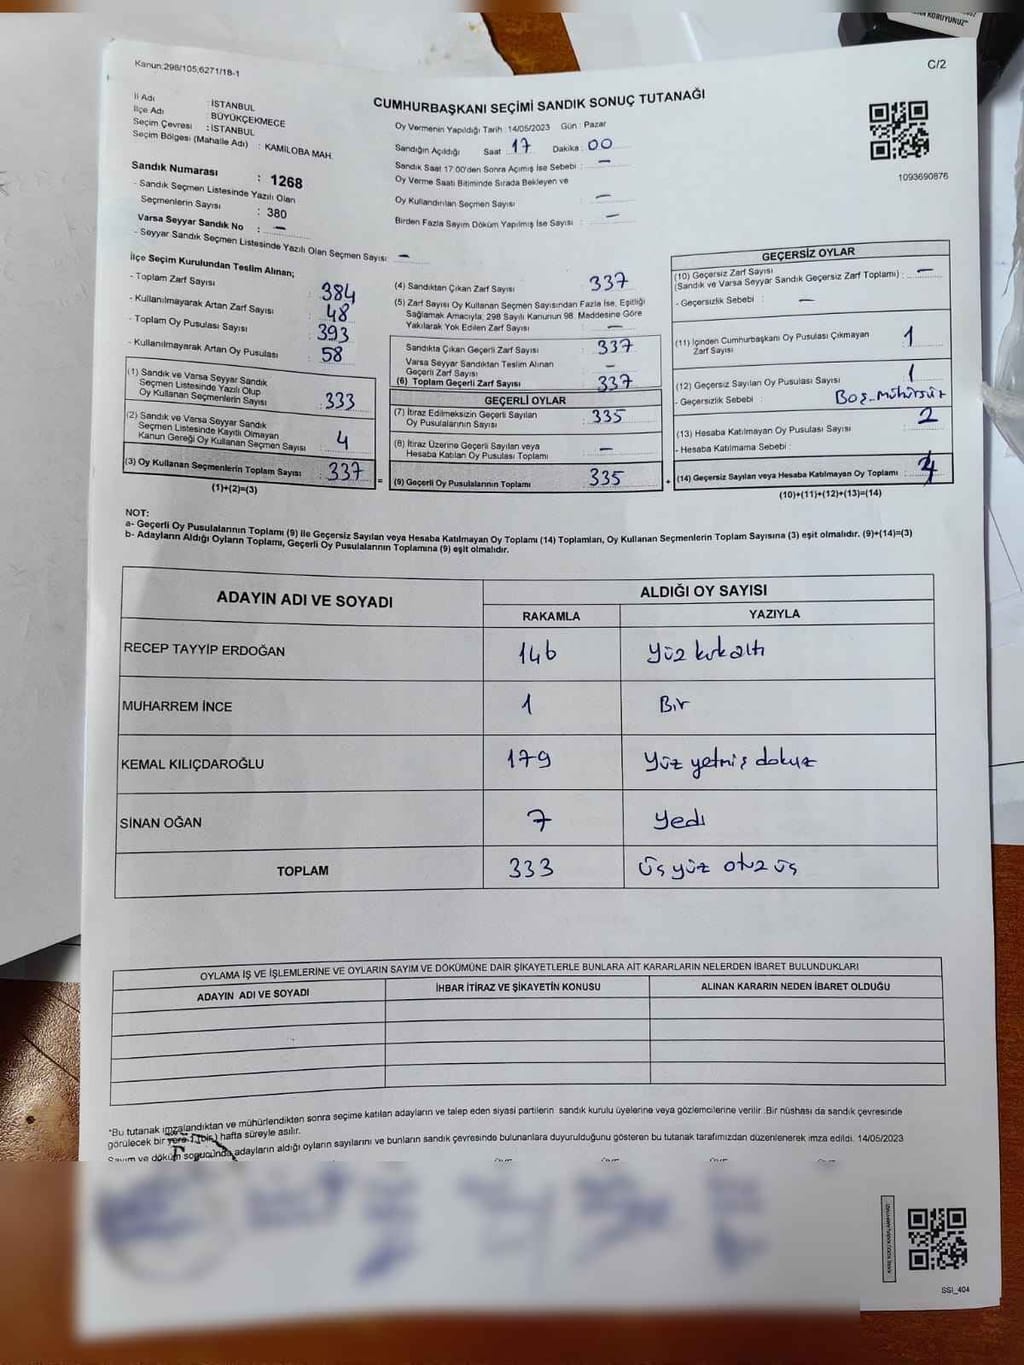 KORUYUNUZ"
Kanun:298/105,6271/18-1
C/2
CUMHURBAŞKANI SEÇİMİ SANDIK SONUÇ TUTANAĞI
İl Adı : İSTANBUL
İlçe Adı BÜYÜKÇEKMECE
Seçim Çevresi : İSTANBUL
Seçim Bölgesi (Mahalle Adı) : KAMİLOBA MAH.
Sandık Numarası : 1268
- Sandık Seçmen Listesinde Yazılı Olan
Seçmenlerin Sayısı : 380
Varsa Seyyar Sandık No : —
- Seyyar Sandık Seçmen Listesinde Yazılı Olan Seçmen Sayısı: —
Oy Vermenin Yapıldığı Tarih :14/05/2023 Gün : Pazar
Sandığın Açıldığı Saat : 17 Dakika : 00
Sandık Saat 17:00'den Sonra Açımış İse Sebebi : —
Oy Verme Saati Bitiminde Sırada Bekleyen ve
Oy Kullandırılan Seçmen Sayısı —
Birden Fazla Sayım Döküm Yapılmış İse Sayısı : —
1093690876
İlçe Seçim Kurulundan Teslim Alınan;
- Toplam Zarf Sayısı 384
- Kullanılmayarak Artan Zarf Sayısı 48
- Toplam Oy Pusulası Sayısı 393
- Kullanılmayarak Artan Oy Pusulası 58
(1) Sandık ve Varsa Seyyar Sandık
Seçmen Listesinde Yazılı Olup
Oy Kullanan Seçmenlerin Sayısı 333
(2) Sandık ve Varsa Seyyar Sandık
Seçmen Listesinde Kayıtlı Olmayan
Kanun Gereği Oy Kullanan Seçmen Sayısı 4
(3) Oy Kullanan Seçmenlerin Toplam Sayısı 337
(1)+(2)=(3)
(4) Sandıktan Çıkan Zarf Sayısı 337
(5) Zarf Sayısı Oy Kullanan Seçmen Sayısından Fazla İse, Eşitliği
Sağlamak Amacıyla, 298 Sayılı Kanunun 98. Maddesine Göre
Yakılarak Yok Edilen Zarf Sayısı —
Sandıkta Çıkan Geçerli Zarf Sayısı 337
Varsa Seyyar Sandıktan Teslim Alınan
Geçerli Zarf Sayısı —
(6) Toplam Geçerli Zarf Sayısı 337
GEÇERLİ OYLAR
(7) İtiraz Edilmeksizin Geçerli Sayılan
Oy Pusulalarının Sayısı 335
(8) İtiraz Üzerine Geçerli Sayılan veya
Hesaba Katılan Oy Pusulası Toplamı —
= (9) Geçerli Oy Pusulalarının Toplamı 335
GEÇERSİZ OYLAR
(10) Geçersiz Zarf Sayısı
(Sandık ve Varsa Seyyar Sandık Geçersiz Zarf Toplamı) : —
- Geçersizlik Sebebi : —
(11) İçinden Cumhurbaşkanı Oy Pusulası Çıkmayan
Zarf Sayısı 1
(12) Geçersiz Sayılan Oy Pusulası Sayısı 1
- Geçersizlik Sebebi : Boş-mühürsüz
(13) Hesaba Katılmayan Oy Pusulası Sayısı 2
- Hesaba Katılmama Sebebi :
+ (14) Geçersiz Sayılan veya Hesaba Katılmayan Oy Toplamı 4
(10)+(11)+(12)+(13)=(14)
NOT:
a- Geçerli Oy Pusulalarının Toplamı (9) ile Geçersiz Sayılan veya Hesaba Katılmayan Oy Toplamı (14) Toplamları, Oy Kullanan Seçmenlerin Toplam Sayısına (3) eşit olmalıdır. (9)+(14)=(3)
b- Adayların Aldığı Oyların Toplamı, Geçerli Oy Pusulalarının Toplamına (9) eşit olmalıdır.
ADAYIN ADI VE SOYADI ALDIĞI OY SAYISI
RAKAMLA YAZIYLA
RECEP TAYYİP ERDOĞAN 146 Yüz kırkaltı
MUHARREM İNCE 1 Bir
KEMAL KILIÇDAROĞLU 179 Yüz yetmiş dokuz
SİNAN OĞAN 7 Yedi
TOPLAM 333 Üç yüz otuz üç
OYLAMA İŞ VE İŞLEMLERİNE VE OYLARIN SAYIM VE DÖKÜMÜNE DAİR ŞİKAYETLERLE BUNLARA AİT KARARLARIN NELERDEN İBARET BULUNDUKLARI
ADAYIN ADI VE SOYADI İHBAR İTİRAZ VE ŞİKAYETİN KONUSU ALINAN KARARIN NEDEN İBARET OLDUĞU
*Bu tutanak imzalandıktan ve mühürlendikten sonra seçime katılan adayların ve talep eden siyasi partilerin sandık kurulu üyelerine veya gözlemcilerine verilir .Bir nüshası da sandık çevresinde
görülecek bir yere 1 (bir) hafta süreyle asılır.
Sayım ve döküm sonucunda adayların aldığı oyların sayılarını ve bunların sandık çevresinde bulunanlara duyurulduğunu gösteren bu tutanak tarafımızdan düzenlenerek imza edildi. 14/05/2023
SSI_404